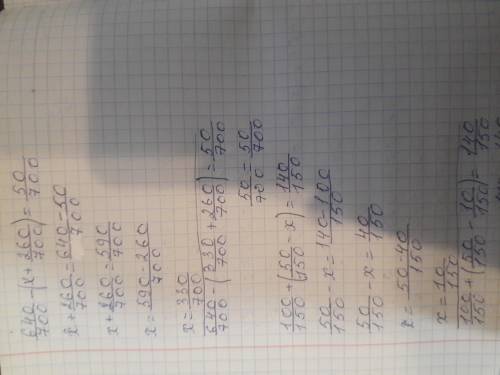 640/700 - (x + 260/700) = 50/700
x + 260/700 = 640-50/700
x + 260/700 = 590/700
x = 590-260/700
x = 330/700
640/700 - (330/700 + 260/700) = 50/700
50/700 = 50/700
100/150 + (50/150 - x) = 140/150
50/150 - x = 140-100/150
50/150 - x = 40/150
x = 50-40/150
x = 10/150
100/150 + (50/150 - 10/150) = 140/150